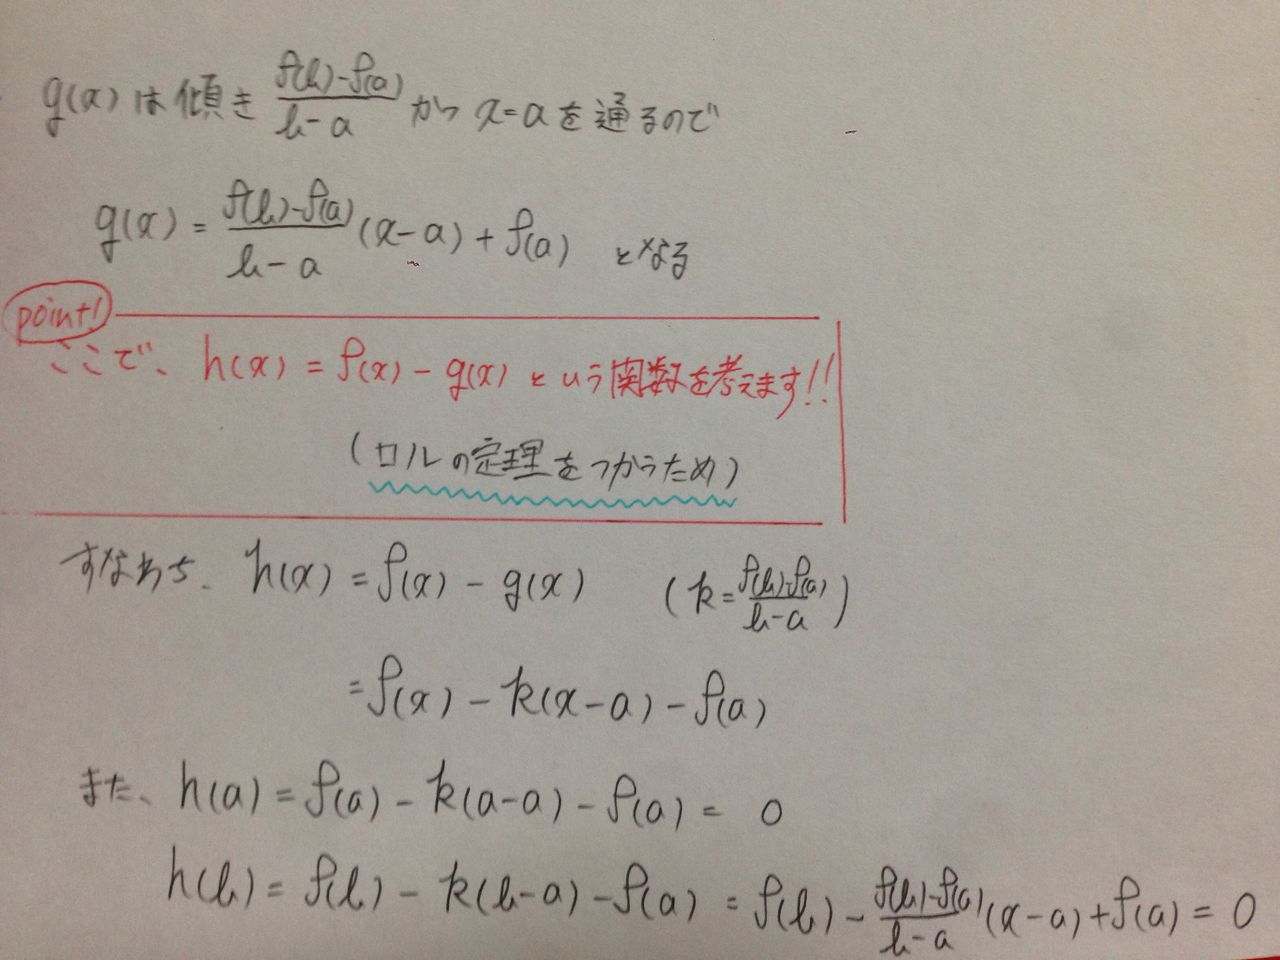 g(x)は傾き (f(b)-f(a))/(b-a) かつ x=aを通るので
g(x) = (f(b)-f(a))/(b-a) (x-a) + f(a) となる
point!
ここで、h(x) = f(x) - g(x) という関数を考えます!!
(ロルの定理をつかうため)
すなわち、h(x) = f(x) - g(x) (k = (f(b)-f(a))/(b-a))
= f(x) - k(x-a) - f(a)
また、h(a) = f(a) - k(a-a) - f(a) = 0
h(b) = f(b) - k(b-a) - f(a) = f(b) - (f(b)-f(a))/(b-a) (x-a) + f(a) = 0